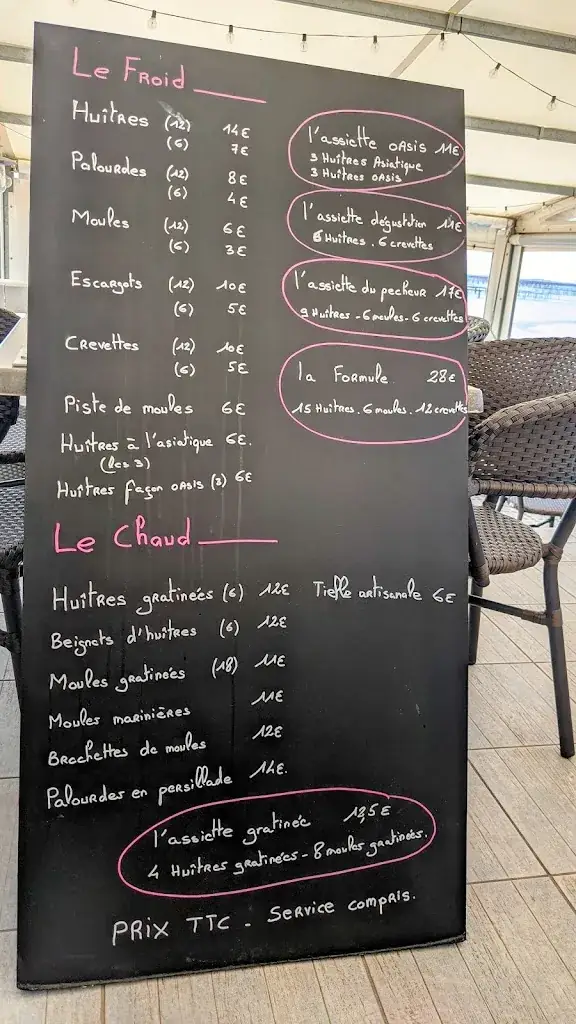 Le Froid
Huîtres (12) 14€
(6) 7€
Palourdes (12) 8€
(6) 4€
Moules (12) 6€
(6) 3€
Escargots (12) 10€
(6) 5€
Crevettes (12) 10€
(6) 5€
Piste de moules 6€
Huîtres à l'asiatique 6€.
(les 3)
Huîtres façon oasis (3) 6€
l'assiette oasis 11€
3 Huîtres Asiatique
3 Huîtres oasis
l'assiette dégustation 11€
6 Huîtres . 6 crevettes
l'assiette du pecheur 17€
9 Huîtres - 6 moules - 6 crevettes
la Formule. 28€
15 Huîtres . 6 moules . 12 crevettes
Le Chaud
Huîtres gratinées (6) 12€ Tielle artisanale 6€
Beignets d'huîtres (6) 12€
Moules gratinées (18) 11€
Moules marinières 11€
Brochettes de moules 12€
Palourdes en persillade 14€.
l'assiette gratinée 12,5€
4 Huîtres gratinées - 8 moules gratinées.
PRIX TTC - Service compris.